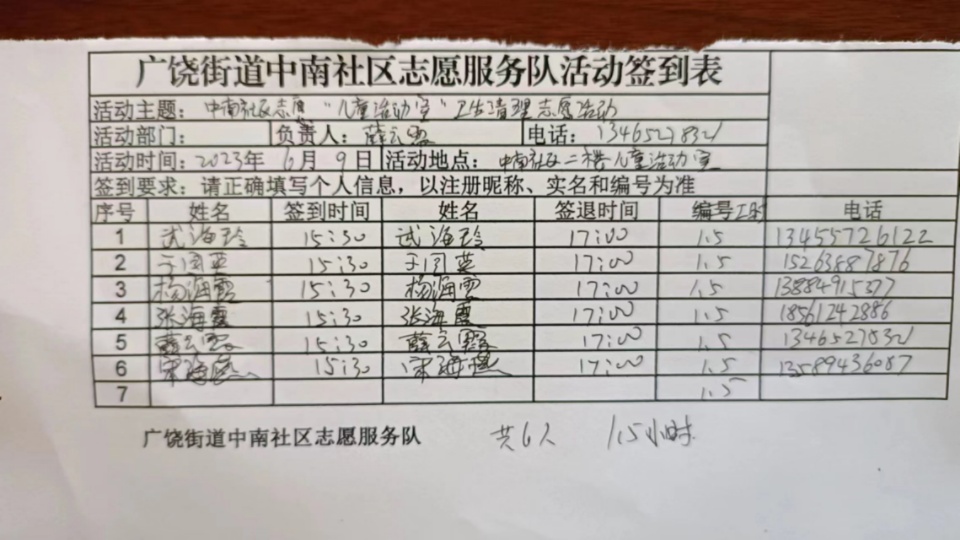 广饶街道中南社区志愿服务队活动签到表
活动主题： 中南社区志愿“儿童活动室”卫生清理志愿活动
活动部门： 负责人：薛云霞 电话：13465278321
活动时间：2023年 6月 9日 活动地点： 中南社区二楼儿童活动室
签到要求：请正确填写个人信息，以注册昵称、实名和编号为准
序号 姓名 签到时间 姓名 签退时间 编号工时 电话
1 武海玲 15:30 武海玲 17:00 1.5 13455726122
2 15:30 17:00 1.5 15263887876
3 杨海霞 15:30 杨海霞 17:00 1.5 13884915377
4 张海霞 15:30 张海霞 17:00 1.5 18561242886
5 薛云霞 15:30 薛云霞 17:00 1.5 13465278321
6 15:30 17:00 1.5 13589436087
7 1.5
广饶街道中南社区志愿服务队 共6人 1.5小时